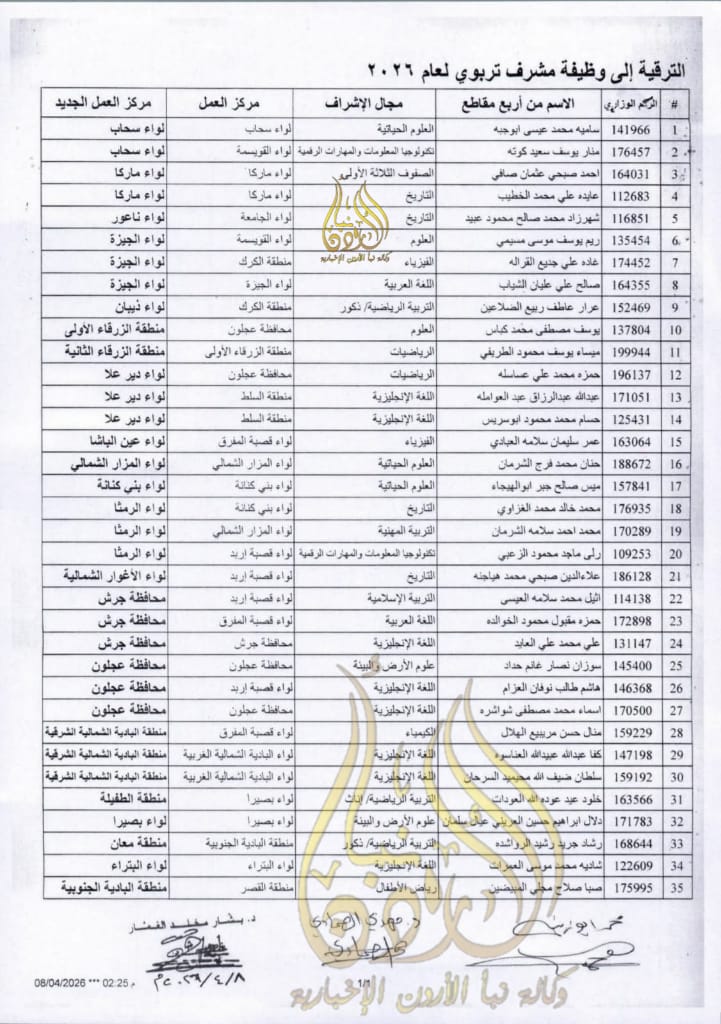 الترقية إلى وظيفة مشرف تربوي لعام ٢٠٢٦
# الرقم الوزاري الاسم من أربع مقاطع مجال الإشراف مركز العمل مركز العمل الجديد
1 141966 ساميه محمد عيسى ابوجبه العلوم الحياتية لواء سحاب لواء سحاب
2 176457 منار يوسف سعيد كوته تكنولوجيا المعلومات والمهارات الرقمية لواء القويسمة لواء سحاب
3 164031 احمد صبحي عثمان صافي الصفوف الثلاثة الأولى لواء ماركا لواء ماركا
4 112683 عايده علي محمد الخطيب التاريخ لواء ماركا لواء ماركا
5 116851 شهرزاد محمد صالح محمود عبيد التاريخ لواء الجامعة لواء ناعور
6 135454 ريم يوسف موسى مسيمي العلوم لواء القويسمة لواء الجيزة
7 174452 غاده علي جديع القراله الفيزياء منطقة الكرك لواء الجيزة
8 164355 صالح علي عليان الشياب اللغة العربية لواء الجيزة لواء الجيزة
9 152469 عرار عاطف ربيع الضلاعين التربية الرياضية/ ذكور منطقة الكرك لواء ذيبان
10 137804 يوسف مصطفى محمد كباس العلوم محافظة عجلون منطقة الزرقاء الأولى
11 199944 ميساء يوسف محمود الطريفي الرياضيات منطقة الزرقاء الأولى منطقة الزرقاء الثانية
12 196137 حمزه محمد علي عساسله الرياضيات محافظة عجلون لواء دير علا
13 171051 عبدالله عبدالرزاق عبد العوامله اللغة الإنجليزية منطقة السلط لواء دير علا
14 125431 حسام محمد محمود ابوسريس اللغة الإنجليزية منطقة السلط لواء دير علا
15 163064 عمر سليمان سلامه العبادي الفيزياء لواء قصبة المفرق لواء عين الباشا
16 188672 حنان محمد فرج الشرمان العلوم الحياتية لواء المزار الشمالي لواء المزار الشمالي
17 157841 ميس صالح جبر ابوالهيجاء العلوم الحياتية لواء بني كنانة لواء بني كنانة
18 176935 محمد خالد محمد الغزاوي التاريخ لواء بني كنانة لواء الرمثا
19 170289 محمد احمد سلامه الشرمان التربية المهنية لواء المزار الشمالي لواء الرمثا
20 109253 رلى ماجد محمود الزعبي تكنولوجيا المعلومات والمهارات الرقمية لواء قصبة إربد لواء الرمثا
21 186128 علاءالدين صبحي محمد هياجنه التاريخ لواء قصبة إربد لواء الأغوار الشمالية
22 114138 اثيل محمد سلامه العيسى التربية الإسلامية لواء قصبة إربد محافظة جرش
23 172898 حمزه مقبول محمود الخوالده اللغة العربية لواء قصبة المفرق محافظة جرش
24 131147 علي محمد علي العابد اللغة الإنجليزية محافظة جرش محافظة جرش
25 145400 سوزان نصار غانم حداد علوم الأرض والبيئة محافظة عجلون محافظة عجلون
26 146368 هاشم طالب نوفان العزام اللغة الإنجليزية لواء قصبة إربد محافظة عجلون
27 170500 اسماء محمد مصطفى شواشره اللغة الإنجليزية محافظة عجلون محافظة عجلون
28 159229 منال حسن مريبيع الهلال الكيمياء لواء قصبة المفرق منطقة البادية الشمالية الشرقية
29 147198 كفا عبدالله عبيدالله العناسوه اللغة الإنجليزية لواء البادية الشمالية الغربية منطقة البادية الشمالية الشرقية
30 159192 سلطان ضيف الله محيميد السرحان اللغة الإنجليزية لواء البادية الشمالية الغربية منطقة البادية الشمالية الشرقية
31 163566 خلود عيد عوده الله العودات التربية الرياضية/ إناث لواء بصيرا منطقة الطفيلة
32 171783 دلال ابراهيم حسين العريني عيال سلمان علوم الأرض والبيئة لواء بصيرا لواء بصيرا
33 168644 رشاد جريد رشيد الرواشده التربية الرياضية/ ذكور منطقة البادية الجنوبية منطقة معان
34 122609 شاديه محمد موسى العمرات اللغة الإنجليزية لواء البتراء لواء البتراء
35 175995 صبا صلاح مجلي المبيضين رياض الأطفال منطقة القصر منطقة البادية الجنوبية
نبأ الأردن
وكالة نبأ الأردن الإخبارية
د. بشار
٢٠٢٦/٤/٨م
08/04/2026 *** 02:25 م
1/1
وكالة نبأ الأردن الإخبارية